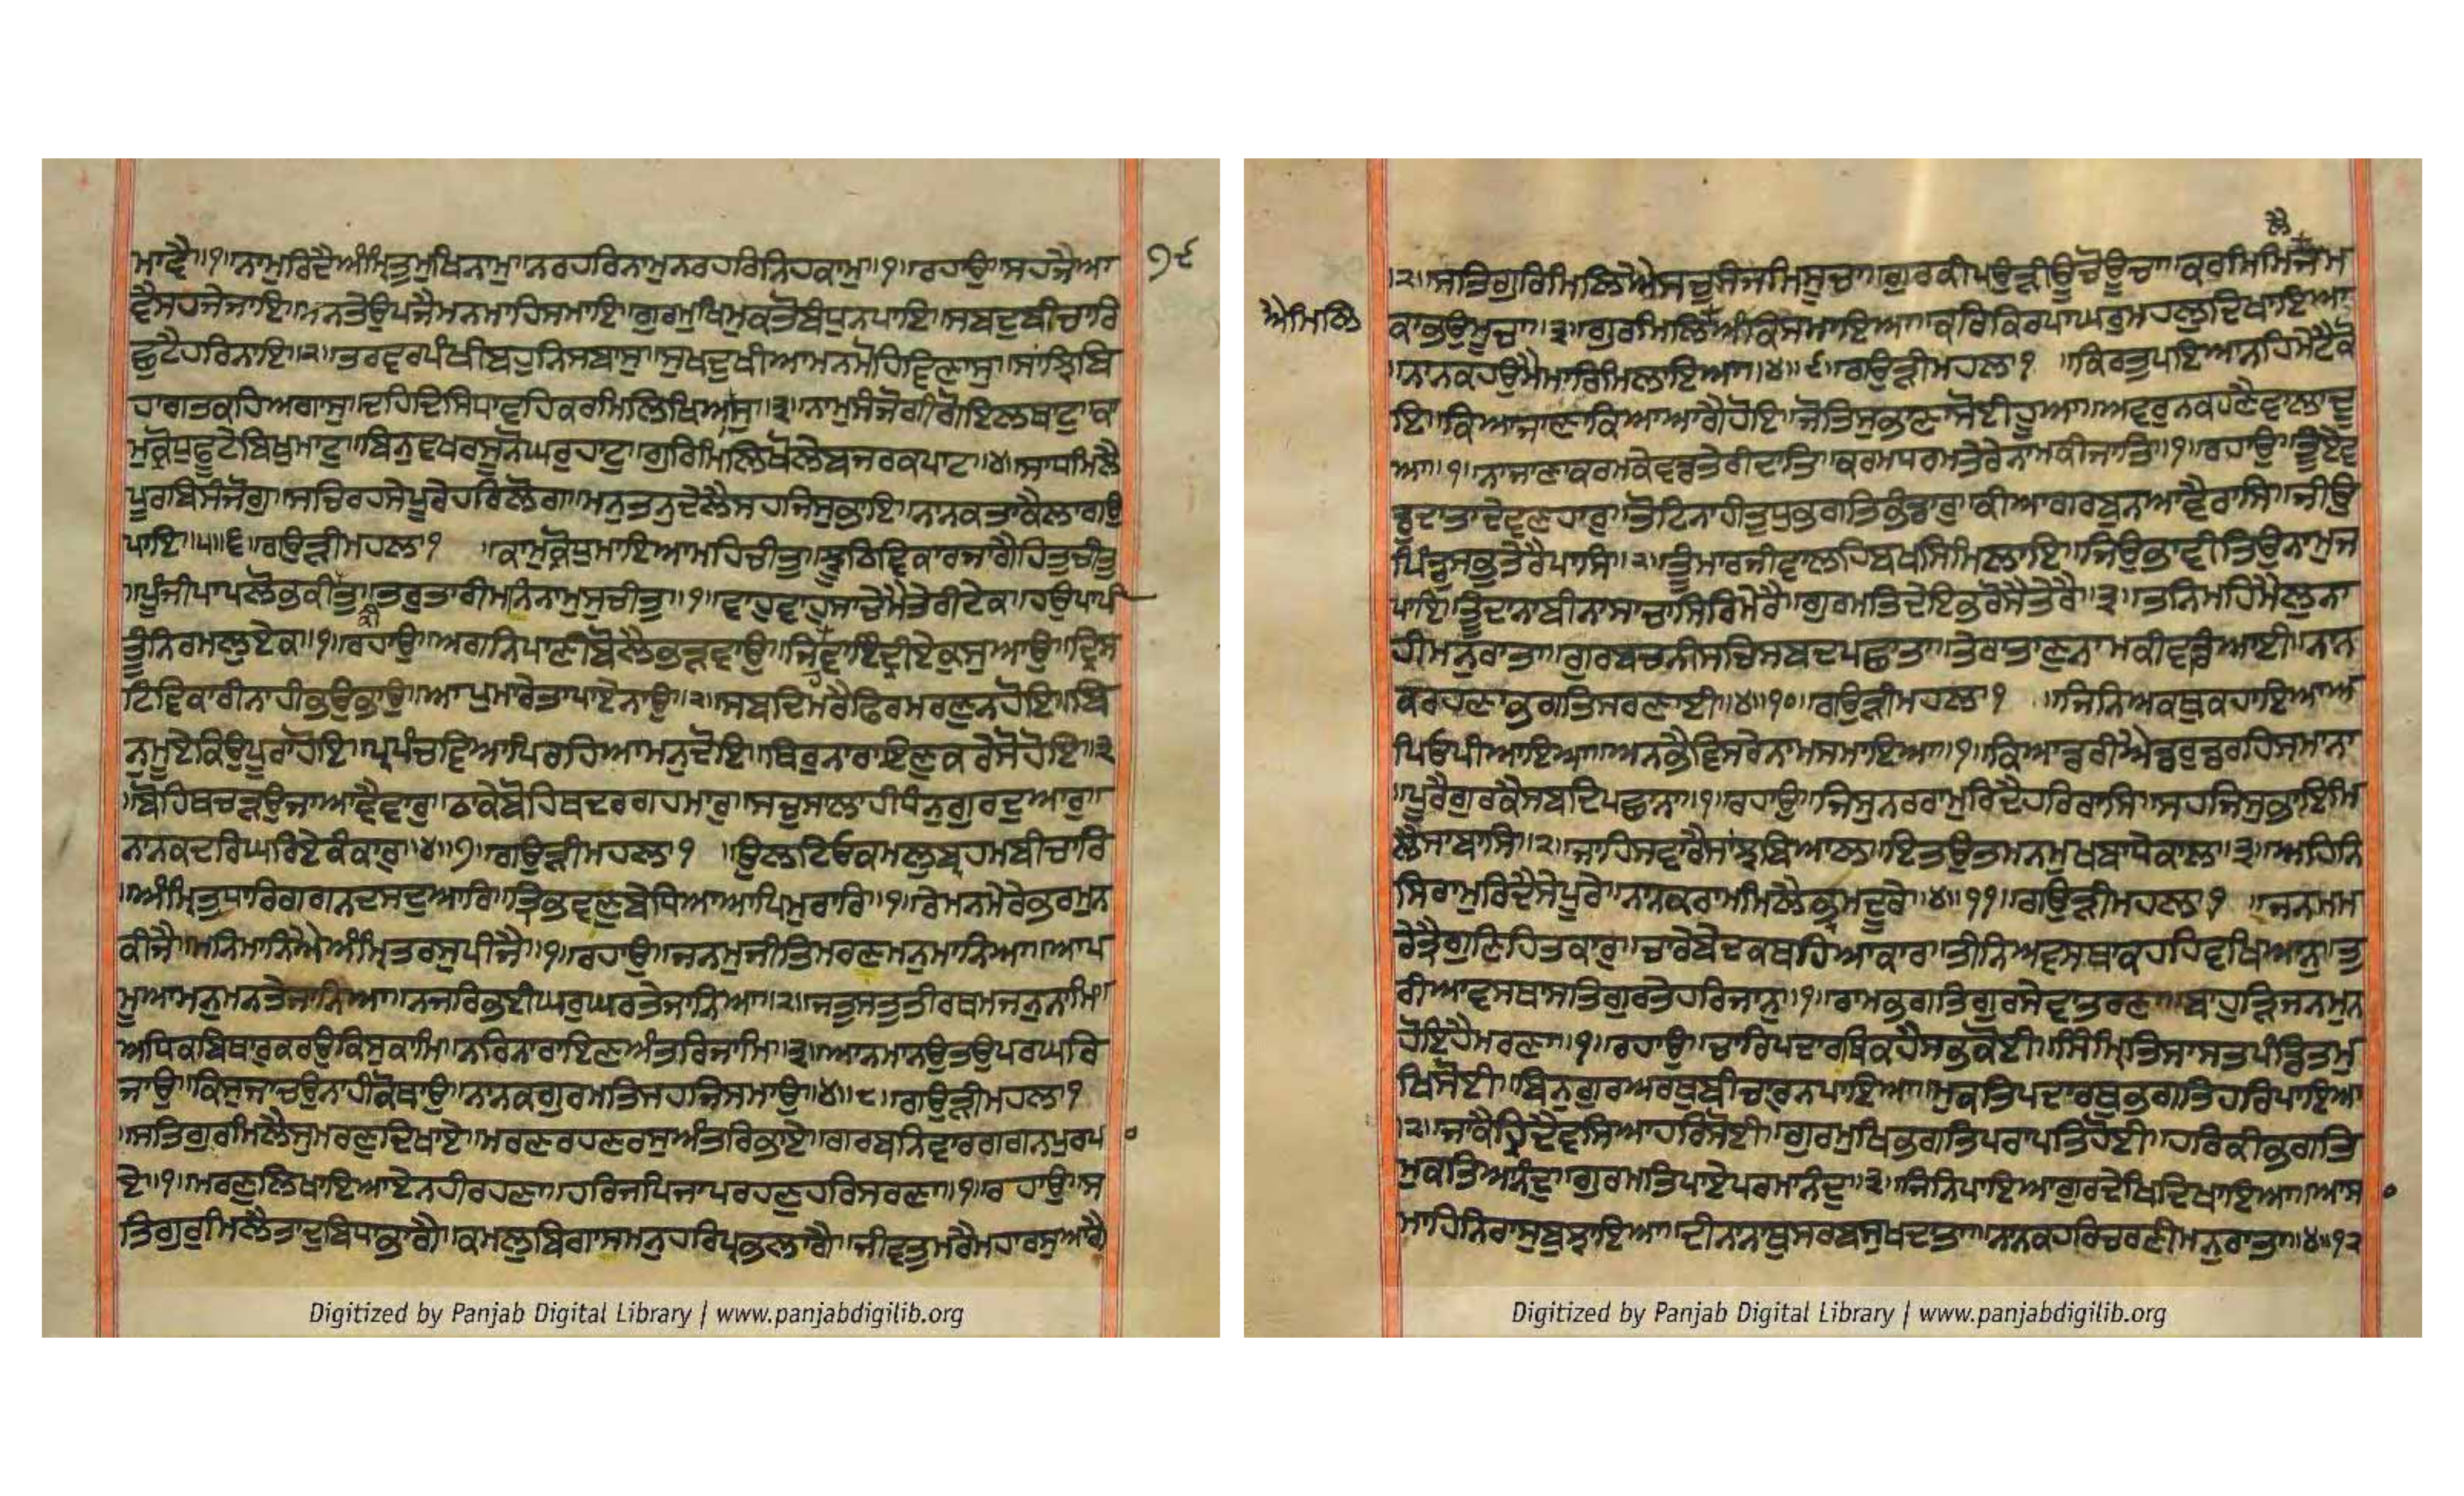 ਮਾਵੈ ॥੧॥ ਨਾਮੁ ਰਿਦੈ ਅੰਮ੍ਰਿਤੁ ਮੁਖਿ ਨਾਮੁ ॥ ਨਰਹਰਿ ਨਾਮੁ ਨਰਹਰਿ ਨਿਹਕਾਮੁ ॥੧॥ ਰਹਾਉ ॥ ਸਹਜੈ ਆ
੭੯
ਵੈ ਸਹਜੇ ਜਾਇ ॥ ਮਨ ਤੇ ਉਪਜੈ ਮਨ ਮਾਹਿ ਸਮਾਇ ॥ ਗੁਰਮੁਖਿ ਮੁਕਤੋ ਬੰਧੁ ਨ ਪਾਇ ॥ ਸਬਦੁ ਬੀਚਾਰਿ
ਛੁਟੈ ਹਰਿ ਨਾਇ ॥੨॥ ਤਰਵਰ ਪੰਖੀ ਬਹੁ ਨਿਸਿ ਬਾਸੁ ॥ ਸੁਖ ਦੁਖੀਆ ਮਨਿ ਮੋਹ ਵਿਣਾਸੁ ॥ ਸਾਝ ਬਿ
ਹਾਗ ਤਕਹਿ ਆਗਾਸੁ ॥ ਦਹ ਦਿਸਿ ਧਾਵਹਿ ਕਰਮਿ ਲਿਖਿਆਸੁ ॥੩॥ ਨਾਮ ਸੰਜੋਗੀ ਗੋਇਲਿ ਥਾਟੁ ॥ ਕਾ
ਮ ਕ੍ਰੋਧ ਫੂਟੈ ਬਿਖੁ ਮਾਟੁ ॥ ਬਿਨੁ ਵਖਰ ਸੂਨੋ ਘਰੁ ਹਾਟੁ ॥ ਗੁਰ ਮਿਲਿ ਖੋਲੇ ਬਜਰ ਕਪਾਟ ॥੪॥ ਸਾਧੁ ਮਿਲੈ
ਪੂਰਬਿ ਸੰਜੋਗੁ ॥ ਸਚਿ ਰਹਸੇ ਪੂਰੇ ਹਰਿ ਲੋਗ ॥ ਮਨੁ ਤਨੁ ਦੇ ਲੈ ਸਹਜਿ ਸੁਭਾਇ ॥ ਨਾਨਕ ਤਾ ਕੈ ਲਾਗਉ
ਪਾਇ ॥੫॥੬॥ ਗਉੜੀ ਮਹਲਾ ੧ ॥ ਕਾਮੁ ਕ੍ਰੋਧੁ ਮਾਇਆ ਮਹਿ ਚੀਤੁ ॥ ਝੂਠ ਵਿਕਾਰਿ ਜਾਗੈ ਹਿਤ ਚੀਤੁ
॥ ਪੂੰਜੀ ਪਾਪ ਲੋਭ ਕੀ ਕੀਤੁ ॥ ਤਰੁ ਤਾਰੀ ਮਨਿ ਨਾਮੁ ਸੁਚੀਤੁ ॥੧॥ ਵਾਹੁ ਵਾਹੁ ਸਾਚੇ ਮੈ ਤੇਰੀ ਟੇਕ ॥ ਹਉ ਪਾਪੀ
ਤੂੰ ਨਿਰਮਲੁ ਏਕ ॥੧॥ ਰਹਾਉ ॥ ਅਗਨਿ ਪਾਣੀ ਬੋਲੈ ਭੜਵਾਉ ॥ ਜਿਹਵਾ ਇੰਦ੍ਰੀ ਏਕੁ ਸੁਆਉ ॥ ਦ੍ਰਿਸ
ਟਿ ਵਿਕਾਰੀ ਨਾਹੀ ਭਉ ਭਾਉ ॥ ਆਪੁ ਮਾਰੇ ਤਾ ਪਾਏ ਨਾਉ ॥੨॥ ਸਬਦਿ ਮਰੈ ਫਿਰਿ ਮਰਣੁ ਨ ਹੋਇ ॥ ਬਿ
ਨੁ ਮੂਏ ਕਿਉ ਪੂਰਾ ਹੋਇ ॥ ਪਰਪੰਚਿ ਵਿਆਪਿ ਰਹਿਆ ਮਨੁ ਦੋਇ ॥ ਥਿਰੁ ਨਾਰਾਇਣੁ ਕਰੇ ਸੋ ਹੋਇ ॥੩
॥ ਬੋਹਿਥਿ ਚੜਉ ਜਾ ਆਵੈ ਵਾਰੁ ॥ ਠਾਕੇ ਬੋਹਿਥ ਦਰਗਹ ਮਾਰ ॥ ਸਚੁ ਸਾਲਾਹੀ ਧੰਨੁ ਗੁਰਦੁਆਰੁ ॥
ਨਾਨਕ ਦਰਿ ਘਰਿ ਏਕੰਕਾਰੁ ॥੪॥੭॥ ਗਉੜੀ ਮਹਲਾ ੧ ॥ ਉਲਟਿਓ ਕਮਲੁ ਬ੍ਰਹਮੁ ਬੀਚਾਰਿ
॥ ਅੰਮ੍ਰਿਤ ਧਾਰ ਗਗਨਿ ਦਸ ਦੁਆਰਿ ॥ ਤ੍ਰਿਭਵਣੁ ਬੇਧਿਆ ਆਪਿ ਮੁਰਾਰਿ ॥੧॥ ਰੇ ਮਨ ਮੇਰੇ ਭਰਮੁ ਨ
ਕੀਜੈ ॥ ਮਨਿ ਮਾਨਿਐ ਅੰਮ੍ਰਿਤ ਰਸੁ ਪੀਜੈ ॥੧॥ ਰਹਾਉ ॥ ਜਨਮੁ ਜੀਤਿ ਮਰਣਿ ਮਨੁ ਮਾਨਿਆ ॥ ਆਪਿ
ਮੂਆ ਮਨੁ ਮਨ ਤੇ ਜਾਨਿਆ ॥ ਨਜਰਿ ਭਈ ਘਰੁ ਘਰ ਤੇ ਜਾਨਿਆ ॥੨॥ ਜਤੁ ਸਤੁ ਤੀਰਥੁ ਮਜਨੁ ਨਾਮਿ
ਅਧਿਕ ਬਿਥਾਰੁ ਕਰਉ ਕਿਸੁ ਕਾਮਿ ॥ ਨਰ ਨਾਰਾਇਣ ਅੰਤਰਜਾਮਿ ॥੩॥ ਆਨ ਮਨਉ ਤਉ ਪਰ ਘਰਿ
ਜਾਉ ॥ ਕਿਸੁ ਜਾਚਉ ਨਾਹੀ ਕੋ ਥਾਉ ॥ ਨਾਨਕ ਗੁਰਮਤਿ ਸਹਜਿ ਸਮਾਉ ॥੪॥੮॥ ਗਉੜੀ ਮਹਲਾ ੧
॥ ਸਤਿਗੁਰੁ ਮਿਲੈ ਸੁ ਮਰਣੁ ਦਿਖਾਏ ॥ ਮਰਣ ਰਹਣ ਰਸੁ ਅੰਤਰਿ ਭਾਏ ॥ ਗਰਬੁ ਨਿਵਾਰਿ ਗਗਨ ਪੁਰੁ ਪਾ
ਏ ॥੧॥ ਮਰਣੁ ਲਿਖਾਇ ਆਏ ਨਹੀ ਰਹਣਾ ॥ ਹਰਿ ਜਪਿ ਜਾਪਿ ਰਹਣੁ ਹਰਿ ਸਰਣਾ ॥੧॥ ਰਹਾਉ ॥ ਸ
ਤਿਗੁਰੁ ਮਿਲੈ ਤਾ ਦੁਬਿਧਾ ਭਾਗੈ ॥ ਕਮਲੁ ਬਿਗਾਸਿ ਮਨੁ ਹਰਿ ਪ੍ਰਭ ਲਾਗੈ ॥ ਜੀਵਤੁ ਮਰੈ ਮਹਾ ਰਸੁ ਆਗੈ
Digitized by Panjab Digital Library | www.panjabdigilib.org
ਲੈ
॥੨॥ ਸਤਿਗੁਰਿ ਮਿਲਿਐ ਸਚ ਸੰਜਮਿ ਸੂਚਾ ॥ ਗੁਰ ਕੀ ਪਉੜੀ ਊਚੋ ਊਚਾ ॥ ਕਰਮਿ ਮਿਲੈ ਜਮ
ਐ ਮਿਲਿ
ਕਾ ਭਉ ਮੂਚਾ ॥੩॥ ਗੁਰਿ ਮਿਲਿਐ ਅੰਕਿ ਸਮਾਇਆ ॥ ਕਰਿ ਕਿਰਪਾ ਘਰੁ ਮਹਲੁ ਦਿਖਾਇਆ
॥ ਨਾਨਕ ਹਉਮੈ ਮਾਰਿ ਮਿਲਾਇਆ ॥੪॥੯॥ ਗਉੜੀ ਮਹਲਾ ੧ ॥ ਕਿਰਤੁ ਪਇਆ ਨਹ ਮੇਟੈ ਕੋ
ਇ ॥ ਕਿਆ ਜਾਣਾ ਕਿਆ ਆਗੈ ਹੋਇ ॥ ਜੋ ਤਿਸੁ ਭਾਣਾ ਸੋਈ ਹੂਆ ॥ ਅਵਰੁ ਨ ਕਰਣੈ ਵਾਲਾ ਦੂ
ਆ ॥੧॥ ਨਾ ਜਾਣਾ ਕਰਮ ਕੇਵਡ ਤੇਰੀ ਦਾਤਿ ॥ ਕਰਮੁ ਧਰਮੁ ਤੇਰੇ ਨਾਮ ਕੀ ਜਾਤਿ ॥੧॥ ਰਹਾਉ ॥ ਤੂ ਏਵ
ਡੁ ਦਾਤਾ ਦੇਵਣਹਾਰੁ ॥ ਤੋਟਿ ਨਾਹੀ ਤੁਧੁ ਭਗਤਿ ਭੰਡਾਰ ॥ ਕੀਆ ਗਰਬੁ ਨ ਆਵੈ ਰਾਸਿ ॥ ਜੀਉ
ਪਿੰਡੁ ਸਭੁ ਤੇਰੈ ਪਾਸਿ ॥੨॥ ਤੂ ਮਾਰਿ ਜੀਵਾਲਹਿ ਬਖਸਿ ਮਿਲਾਇ ॥ ਜਿਉ ਭਾਵੀ ਤਿਉ ਨਾਮੁ ਜ
ਪਾਇ ॥ ਤੂੰ ਦਾਨਾ ਬੀਨਾ ਸਾਚਾ ਸਿਰਿ ਮੇਰੈ ॥ ਗੁਰਮਤਿ ਦੇਇ ਭਰੋਸੈ ਤੇਰੈ ॥੩॥ ਤਨ ਮਹਿ ਮੈਲੁ ਨਾ
ਹੀ ਮਨੁ ਰਾਤਾ ॥ ਗੁਰ ਬਚਨੀ ਸਚੁ ਸਬਦਿ ਪਛਾਤਾ ॥ ਤੇਰਾ ਤਾਣੁ ਨਾਮ ਕੀ ਵਡਿਆਈ ॥ ਨਾਨ
ਕ ਰਹਣਾ ਭਗਤਿ ਸਰਣਾਈ ॥੪॥੧੦॥ ਗਉੜੀ ਮਹਲਾ ੧ ॥ ਜਿਨਿ ਅਕਥੁ ਕਹਾਇਆ ਅ
ਪਿਓ ਪੀਆਇਆ ॥ ਅਨ ਭੈ ਵਿਸਰੇ ਨਾਮਿ ਸਮਾਇਆ ॥੧॥ ਕਿਆ ਡਰੀਐ ਡਰੁ ਡਰਹਿ ਸਮਾਨਾ
॥ ਪੂਰੇ ਗੁਰ ਕੈ ਸਬਦਿ ਪਛਾਨਾ ॥੧॥ ਰਹਾਉ ॥ ਜਿਸੁ ਨਰ ਰਾਮੁ ਰਿਦੈ ਹਰਿ ਰਾਸਿ ॥ ਸਹਜਿ ਸੁਭਾਇ ਮਿ
ਲੈ ਸਾਬਾਸਿ ॥੨॥ ਜਾਹਿ ਸਵਾਰੈ ਸਾਝ ਬਿਆਲ ॥ ਇਤ ਉਤ ਮਨਮੁਖ ਬਾਧੇ ਕਾਲ ॥੩॥ ਅਹਿਨਿ
ਸਿ ਰਾਮੁ ਰਿਦੈ ਸੇ ਪੂਰੇ ॥ ਨਾਨਕ ਰਾਮ ਮਿਲੈ ਭ੍ਰਮ ਦੂਰੇ ॥੪॥੧੧॥ ਗਉੜੀ ਮਹਲਾ ੧ ॥ ਜਨਮਿ ਮ
ਰੈ ਤ੍ਰੈ ਗੁਣ ਹਿਤਕਾਰੁ ॥ ਚਾਰੇ ਬੇਦ ਕਥਹਿ ਆਕਾਰੁ ॥ ਤੀਨਿ ਅਵਸਥਾ ਕਹਹਿ ਵਖਿਆਨੁ ॥ ਤੁ
ਰੀਆਵਸਥਾ ਸਤਿਗੁਰ ਤੇ ਹਰਿ ਜਾਨੁ ॥੧॥ ਰਾਮ ਭਗਤਿ ਗੁਰ ਸੇਵਾ ਤਰਣਾ ॥ ਬਾਹੁੜਿ ਜਨਮੁ ਨ
ਹੋਇ ਹੈ ਮਰਣਾ ॥੧॥ ਰਹਾਉ ॥ ਚਾਰਿ ਪਦਾਰਥ ਕਹੈ ਸਭੁ ਕੋਈ ॥ ਸਿੰਮ੍ਰਿਤਿ ਸਾਸਤ ਪੰਡਿਤ ਮੁ
ਖਿ ਸੋਈ ॥ ਬਿਨੁ ਗੁਰ ਅਰਥੁ ਬੀਚਾਰੁ ਨ ਪਾਇਆ ॥ ਮੁਕਤਿ ਪਦਾਰਥੁ ਭਗਤਿ ਹਰਿ ਪਾਇਆ
॥੨॥ ਜਾ ਕੈ ਹਿਰਦੈ ਵਸਿਆ ਹਰਿ ਸੋਈ ॥ ਗੁਰਮੁਖਿ ਭਗਤਿ ਪਰਾਪਤਿ ਹੋਈ ॥ ਹਰਿ ਕੀ ਭਗਤਿ
ਮੁਕਤਿ ਆਨੰਦੁ ॥ ਗੁਰਮਤਿ ਪਾਏ ਪਰਮਾਨੰਦੁ ॥੩॥ ਜਿਨਿ ਪਾਇਆ ਗੁਰਿ ਦੇਖਿ ਦਿਖਾਇਆ ॥ ਆਸਾ
ਮਾਹਿ ਨਿਰਾਸੁ ਬੁਝਾਇਆ ॥ ਦੀਨਾ ਨਾਥੁ ਸਰਬ ਸੁਖਦਾਤਾ ॥ ਨਾਨਕ ਹਰਿ ਚਰਣੀ ਮਨੁ ਰਾਤਾ ॥੪॥੧੨
Digitized by Panjab Digital Library | www.panjabdigilib.org